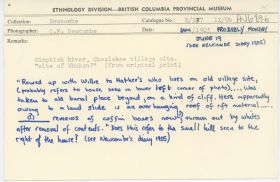 ETHNOLOGY DIVISION—BRITISH COLUMBIA PROVINCIAL MUSEUM
Collection: Newcombe Catalogue No.
Photographer: C.F. Newcombe Date: PROBABLY MONDAY
JUNE 19
(SEE NEWCOMBE DIARY 1905)
Remarks:
Nimpkish River, Cheslakee village site,
"site of Whulk?" (from original print)
"Rowed up with Willie to Hatkee's who lives on old village site,
(probably refers to house seen in lower left corner of photo).... was
taken to old burial place beyond, on a kind of cliff. Here apparently
owing to a land slide is an overhanging roof of rift material....
remains of coffin boxes thrown out by whites
after removal of contents." Does this refer to the small hill seen to the
right of the house? (see Newcombe's diary 1905)